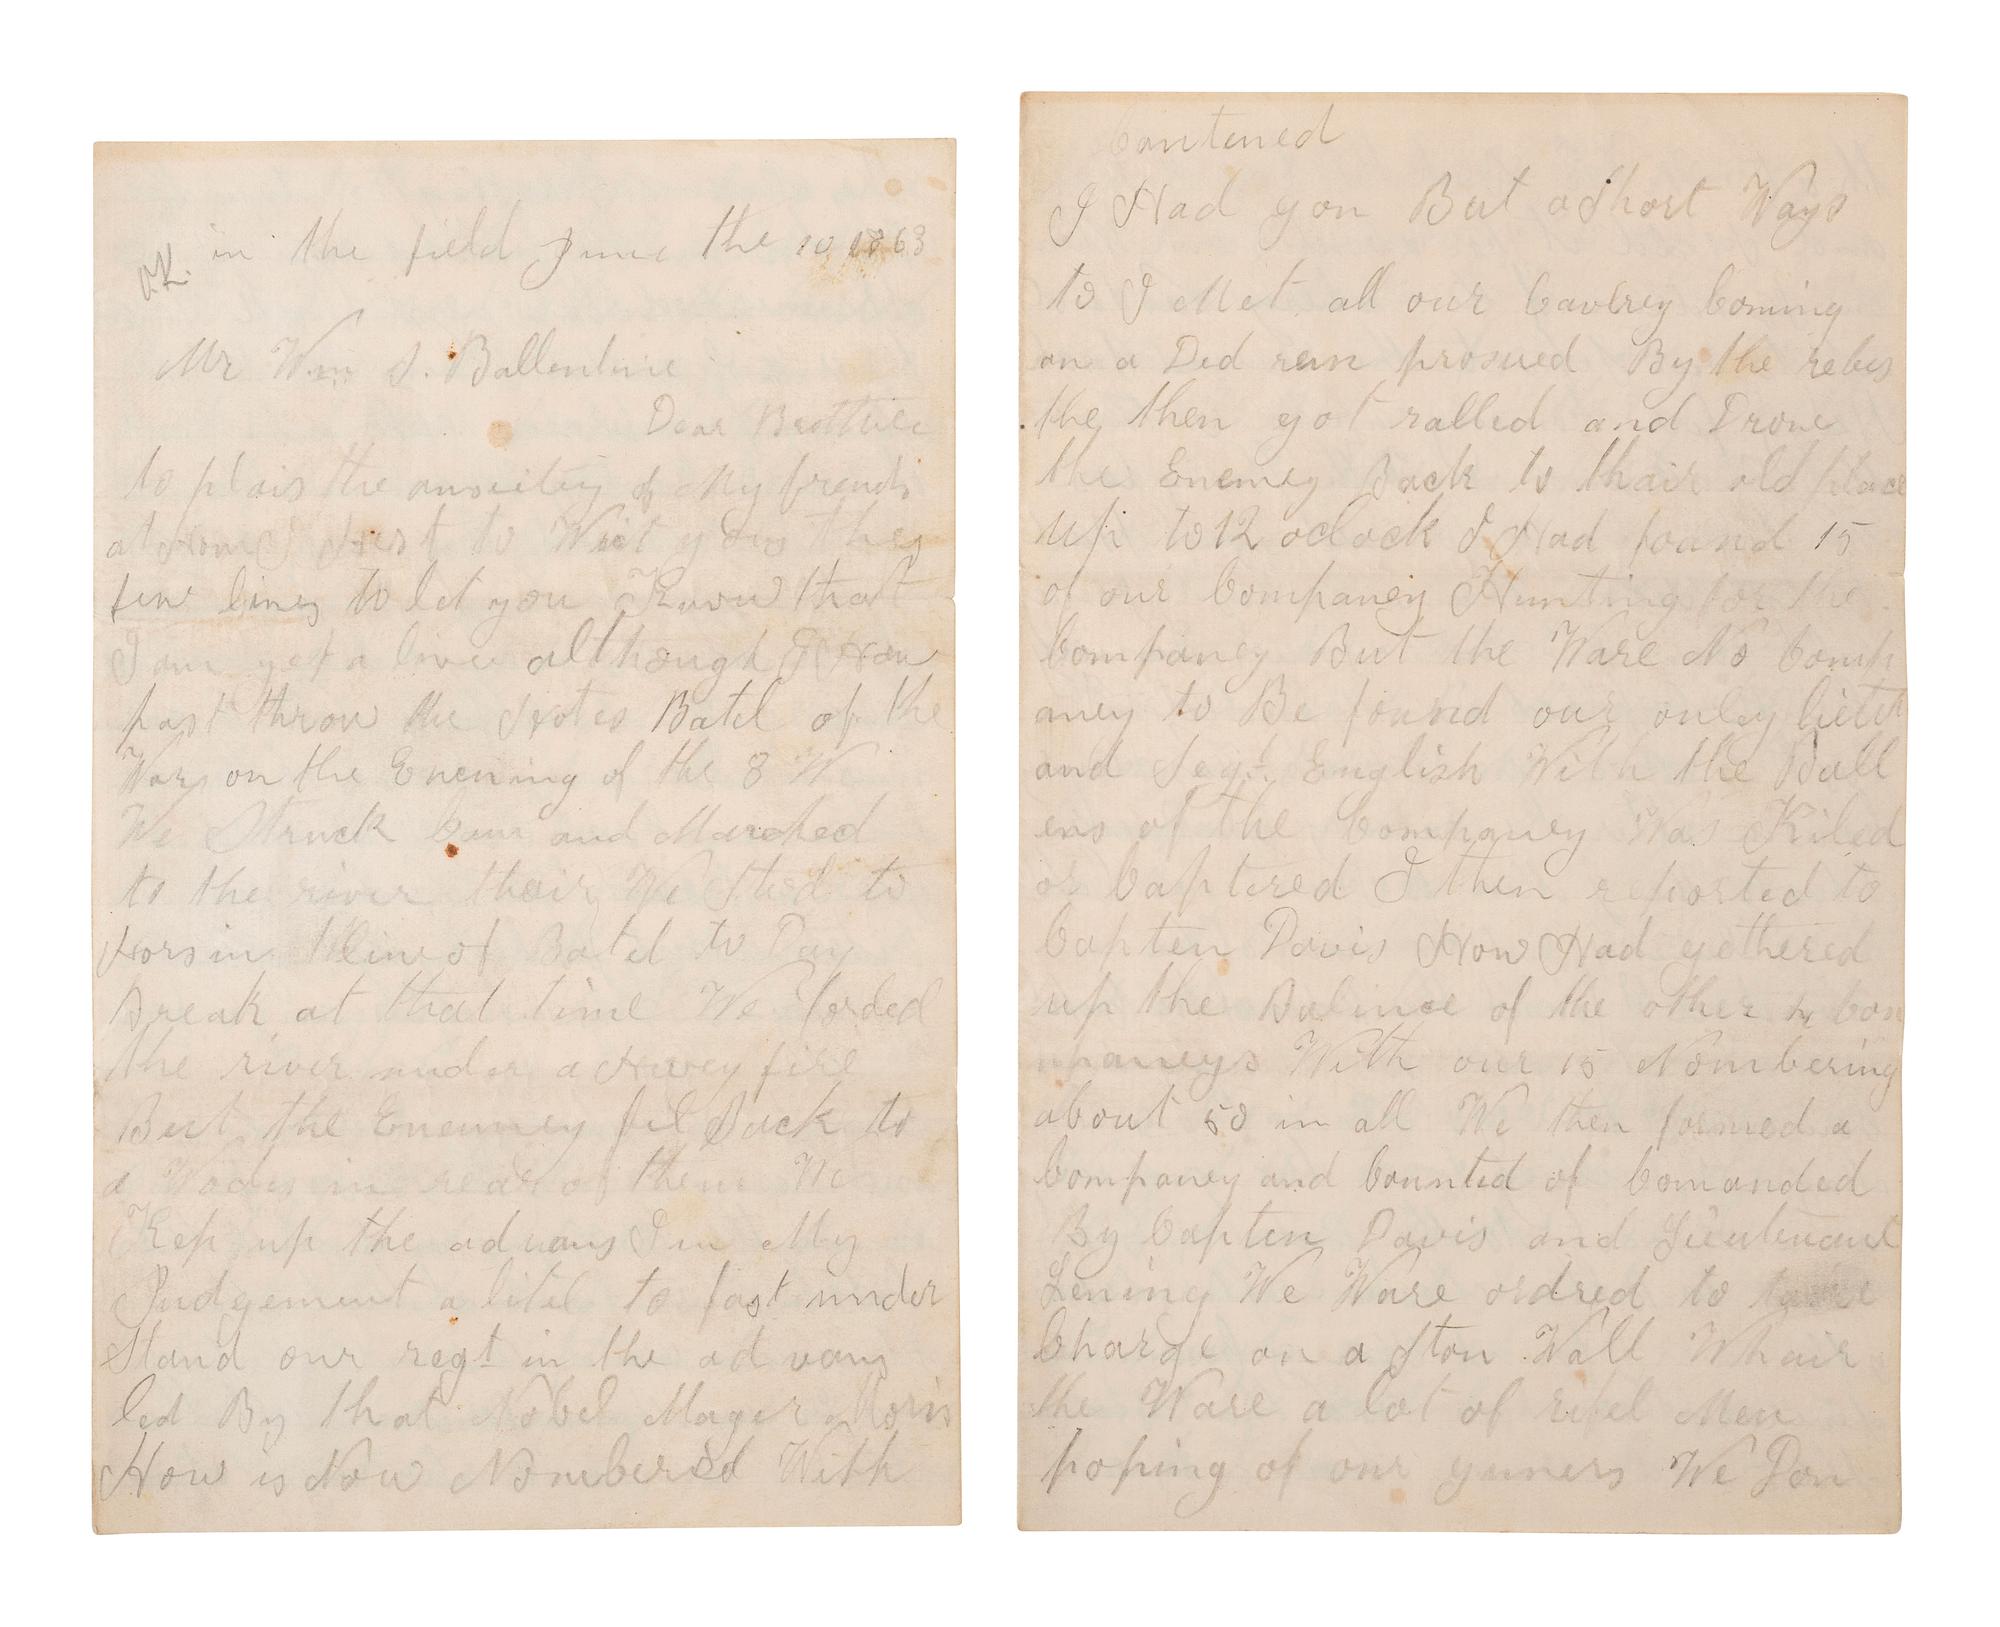 in the field June the 10 1863
Mr Wm S. Ballentine
Dear Brother
to plais the anxcitey of My frends
at Home I Hest to Writ you they
few lines to let you Know that
I am yet a live although I Hav
past throw the Hotes Batel of the
War on the Evening of the 8 We
We Struck Cam and Marched
to the river thair We Stod to
Hors in line of Batel to Day
Break at that time We forded
the river under a Hevey fire
But the Enemey fel Back to
a Wods in rear of them We
Kep up the advans I in My
Judgement a litel to fast under
stand our regt in the advans
led By that Nobel Mager Moris
How is Now Nombered With
Contened
I Had gon But a Short Ways
to I Met all our Cavlrey Coming
on a Ded run prosued By the rebes
the then got ralled and Drove
the Enemey Back to thair old place
up to 12 oclock I Had found 15
of our Companey Hunting for the
Companey But the Ware No Comp
aney to Be found our onley
and Segt. English With the Ball
ens of the Companey Was Kiled
or Captered I then reported to
Capten Davis How Had gethered
up the Balince of the other Com
mpaneys With our 15 Nombering
about 50 in all We then formed a
Companey and Counted of Comanded
By Capten Davis and Lieutenant
Lening We Ware ordred to
Charge on a Ston Wall Whair
the Ware a lot of rifel Men
poping of our guners We Don